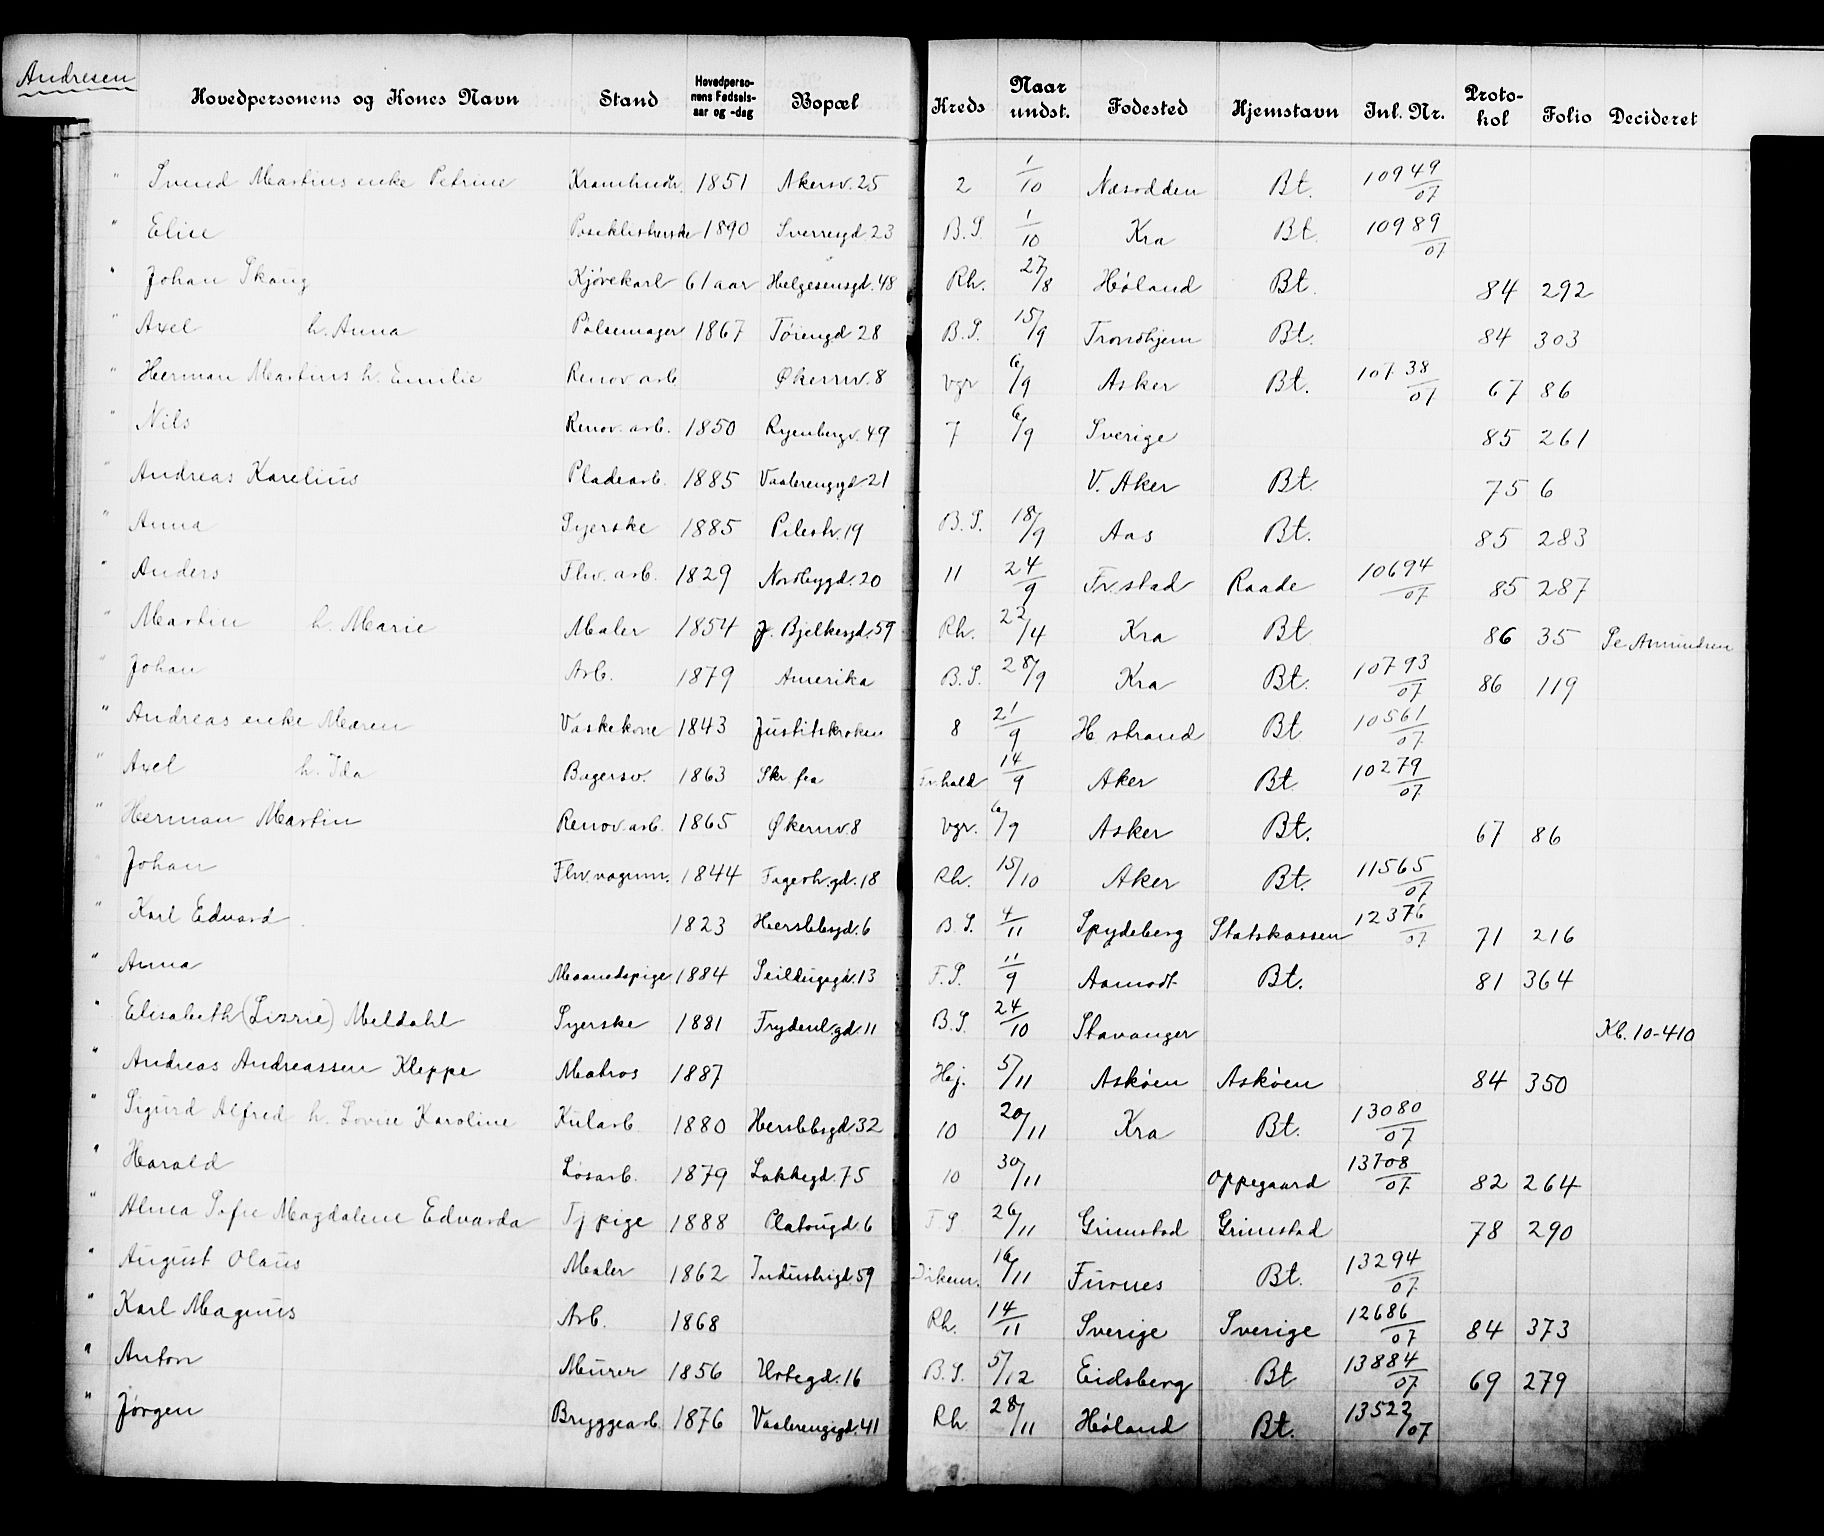 Andresen
Hovedpersonens og Kones Navn Stand Hovedpersonens Fødselsaar og -dag Bopæl Kreds Naar undst. Fødested Hjemstavn Inl. Nr. Protokol Folio Decideret
" Svend Martins enke Petrine 1851 Akersv. 25 2 1/10 Næsodden Bt. 10949/07
" Elise 1890 Sverresgd 23 B.S. 1/10 Kra Bt. 10989/07
" Johan Skaug Kjørekarl 61 aar Helgesensgd. 48 Rh. 27/8 Høland Bt. 84 292
" Axel h. Anna Pølsemager 1867 Tøiengd 28 B.S. 15/9 Trondhjem Bt. 84 303
" Herman Martins h. Emilie Renov arb Økernv. 8 vgr 6/9 Asker Bt. 10738/07 67 86
" Nils Renov. arb. 1850 Ryenbergv. 49 7 6/9 Sverige 85 261
" Andreas Karelius Pladearb. 1885 Vaalerenggd 21 V. Aker Bt. 75 6
" Anna Syerske 1885 Pilestr. 19 B.S. 18/9 Aas Bt. 85 283
" Anders Fhv. arb. 1829 Nordbygd. 20 11 24/9 Fr.stad Raade 10694/07 85 287
" Martin h. Marie Maler 1854 J. Bjelkesgd. 59 Rh. 22/4 Kra Bt 86 35 Se Amundsen
" Johan Arb. 1879 Amerika B.S. 28/9 Kra Bt. 10793/07 86 119
" Andreas enke Maren Vaskekone 1843 Justitskroken 8 21/9 H.strand Bt 10561/07
" Axel h. Ida Bagersv. 1863 Skr fra Fr.hald 14/9 Aker Bt 10279/07
" Herman Martin Renov. arb. 1865 Økernv 8 vgr. 6/9 Asker Bt. 67 86
Johan Fhv. vognm. 1844 Fagerh.gd. 18 Rh. 15/10 Aker Bt. 11565/07
" Karl Edvard 1823 Herslebsgd. 6 B.S. 4/11 Spydeberg Statskassen 12376/07 71 216
" Anna Maanedspige 1884 Seildugsgd. 13 F.S. 11/9 Aamodt Bt. 81 364
" Elisabeth (Lizzie) Meldahl Syerske 1881 Frydenl.gd. 11 B.S. 24/10 Stavanger Kb. 10-410
" Andreas Andreassen Kleppe Matros 1887 Hej. 5/11 Askøen Askøen 84 350
" Sigurd Alfred h. Lovise Karoline Kularb 1880 Herslebsgd 32 10 20/11 Kra Bt. 13080/07
" Harald Løsarb. 1879 Lakkegd. 75 10 30/11 Oppegaard 13708/07 82 264
" Alma Sofie Magdalene Edvarda Tj pige 1888 Platougd. 6 F S 26/11 Grimstad Grimstad 78 290
" August Olaus Maler 1862 Industrigd 59 Dikem. 16/11 Furnes Bt. 13294/07
" Karl Magnus Arb. 1868 Rh. 14/11 Sverige Sverige 12686/07 84 373
" Anton Murer 1856 Urtegd. 16 B.S. 5/12 Eidsberg Bt 13884/07 69 279
" Jørgen Bryggearb. 1876 Vaalerenggd. 41 Rh. 28/11 Høland Bt. 13522/07